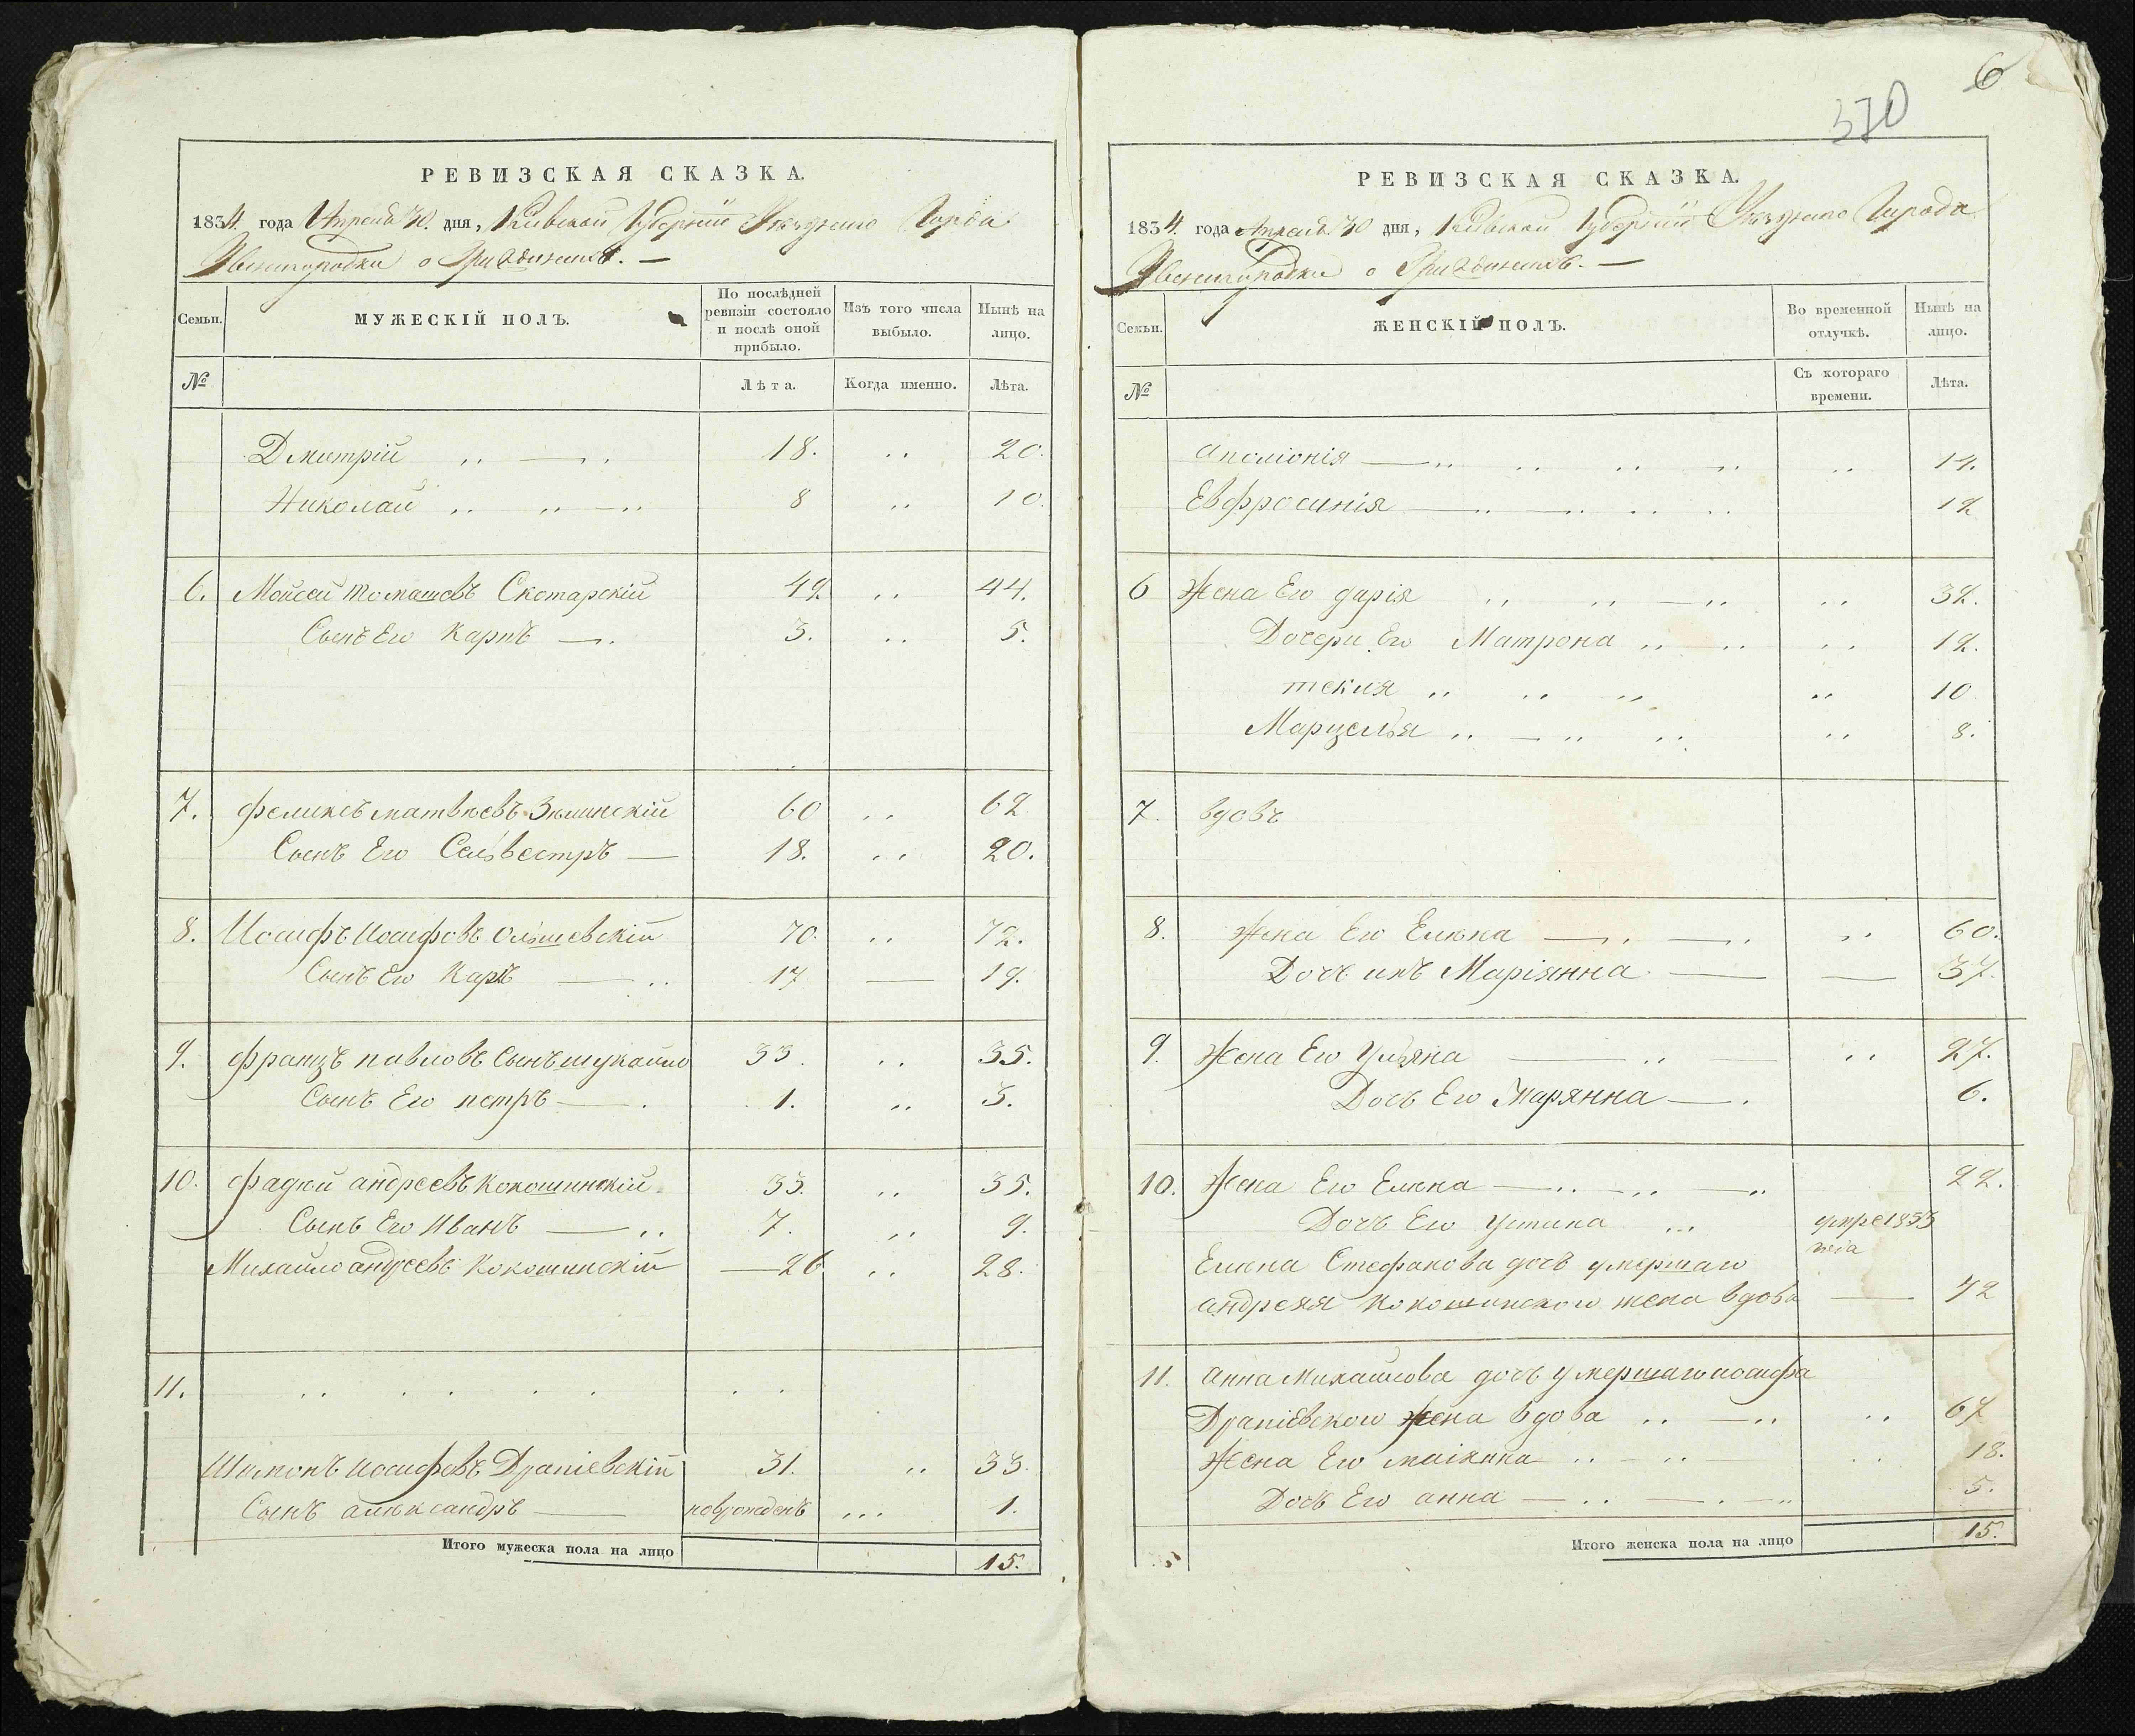 6
370
РЕВИЗСКАЯ СКАЗКА.
1834 года Апреля 30. дня, Кіевской Губерніи Уезднаго Города
Звенигородки о Гражданахъ. —
Семьи. МУЖЕСКІЙ ПОЛЪ. По послѣдней ревизіи состояло и послѣ оной прибыло. Изъ того числа выбыло. Нынѣ на лицо.
№ Лѣта. Когда именно. Лѣта.
Дмитрій 18. 20.
Николай 8 10.
6. Мойсей Томашовъ Скотарскій 42 44.
Сынъ Его Карпъ 3. 5.
7. Феликсъ Матвѣевъ Зѣлинскій 60 62
Сынъ Его Сельвестръ — 18. 20.
8. Иосифъ Иосифовъ Ольшевскій 70. 72.
Сынъ Его Карпъ — 17 — 19.
9. Францъ павловъ Сынъ шукайло 33. 35.
Сынъ Его петръ — 1. 3.
10. фадѣй андреевъ Кокошинскій 33. 35.
Сынъ Его Иванъ — 7. 9.
Михайло андреевъ Кокошинскій — 26 28.
11.
Шимонъ Иосифовъ Драпіевскій 31. 33.
Сынъ александръ — новрожденъ 1.
Итого мужеска пола на лицо 15.
РЕВИЗСКАЯ СКАЗКА.
1834. года Апреля 30 дня, Кіевской Губерніи Уезднаго Города
Звенигородки о Гражданахъ. —
Семьи. ЖЕНСКІЙ ПОЛЪ. Во временной отлучкѣ. Нынѣ на лицо.
№ Съ котораго времени. Лѣта.
Аполіонія — 14.
Евфросинія — 12
6 Жена Его дарія 32.
Дочери Его Матрона 12.
текля 10
Марцелья 8.
7. вдовъ
8. Жена Его Елѣна — 60.
Дочь ихъ Маріянна — — 37.
9. Жена Его Ульяна — 27.
Дочь Его Марянна — 6.
10. Жена Его Елѣна — 22.
Дочь Его Устина 1833
Елѣна Стефанова дочь умершаго
андрея Кокошинского жена вдова — 42
11. Анна Михайлова дочь умершаго иосифа
Драпіевского жена вдова 67
Жена Его маіянна 18.
Дочь Его анна — 5.
Итого женска пола на лицо 15.